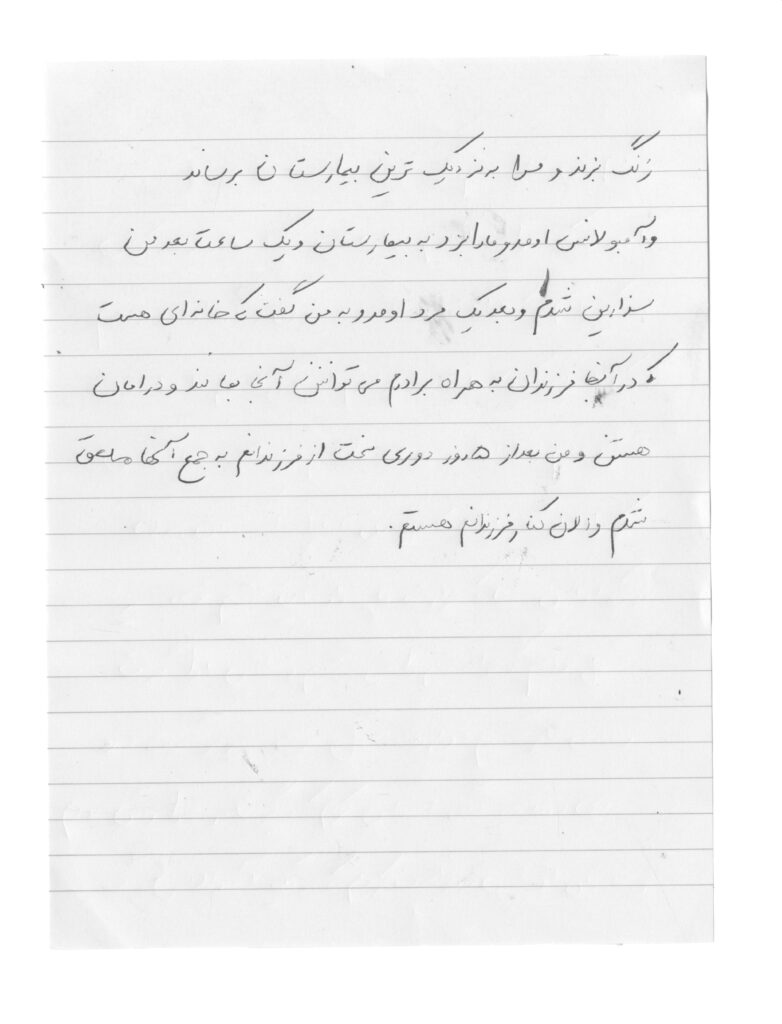 زنگ بزند و مرا به نزدیک ترین بیمارستان برساند
و آمبولانس اومد و مارا برد به بیمارستان و یک ساعت بعد من
سزارین شدم و بعد یک مرد اومد و به من گفت که خانه ای هست
که در آنجا فرزندان به همراه برادرم می توانن آنجا بمانند و در امان
هستن و من بعد از ۵ روز دوری سخت از فرزندانم به جمع آنها ملحق
شدم و الان کنار فرزندانم هستم.